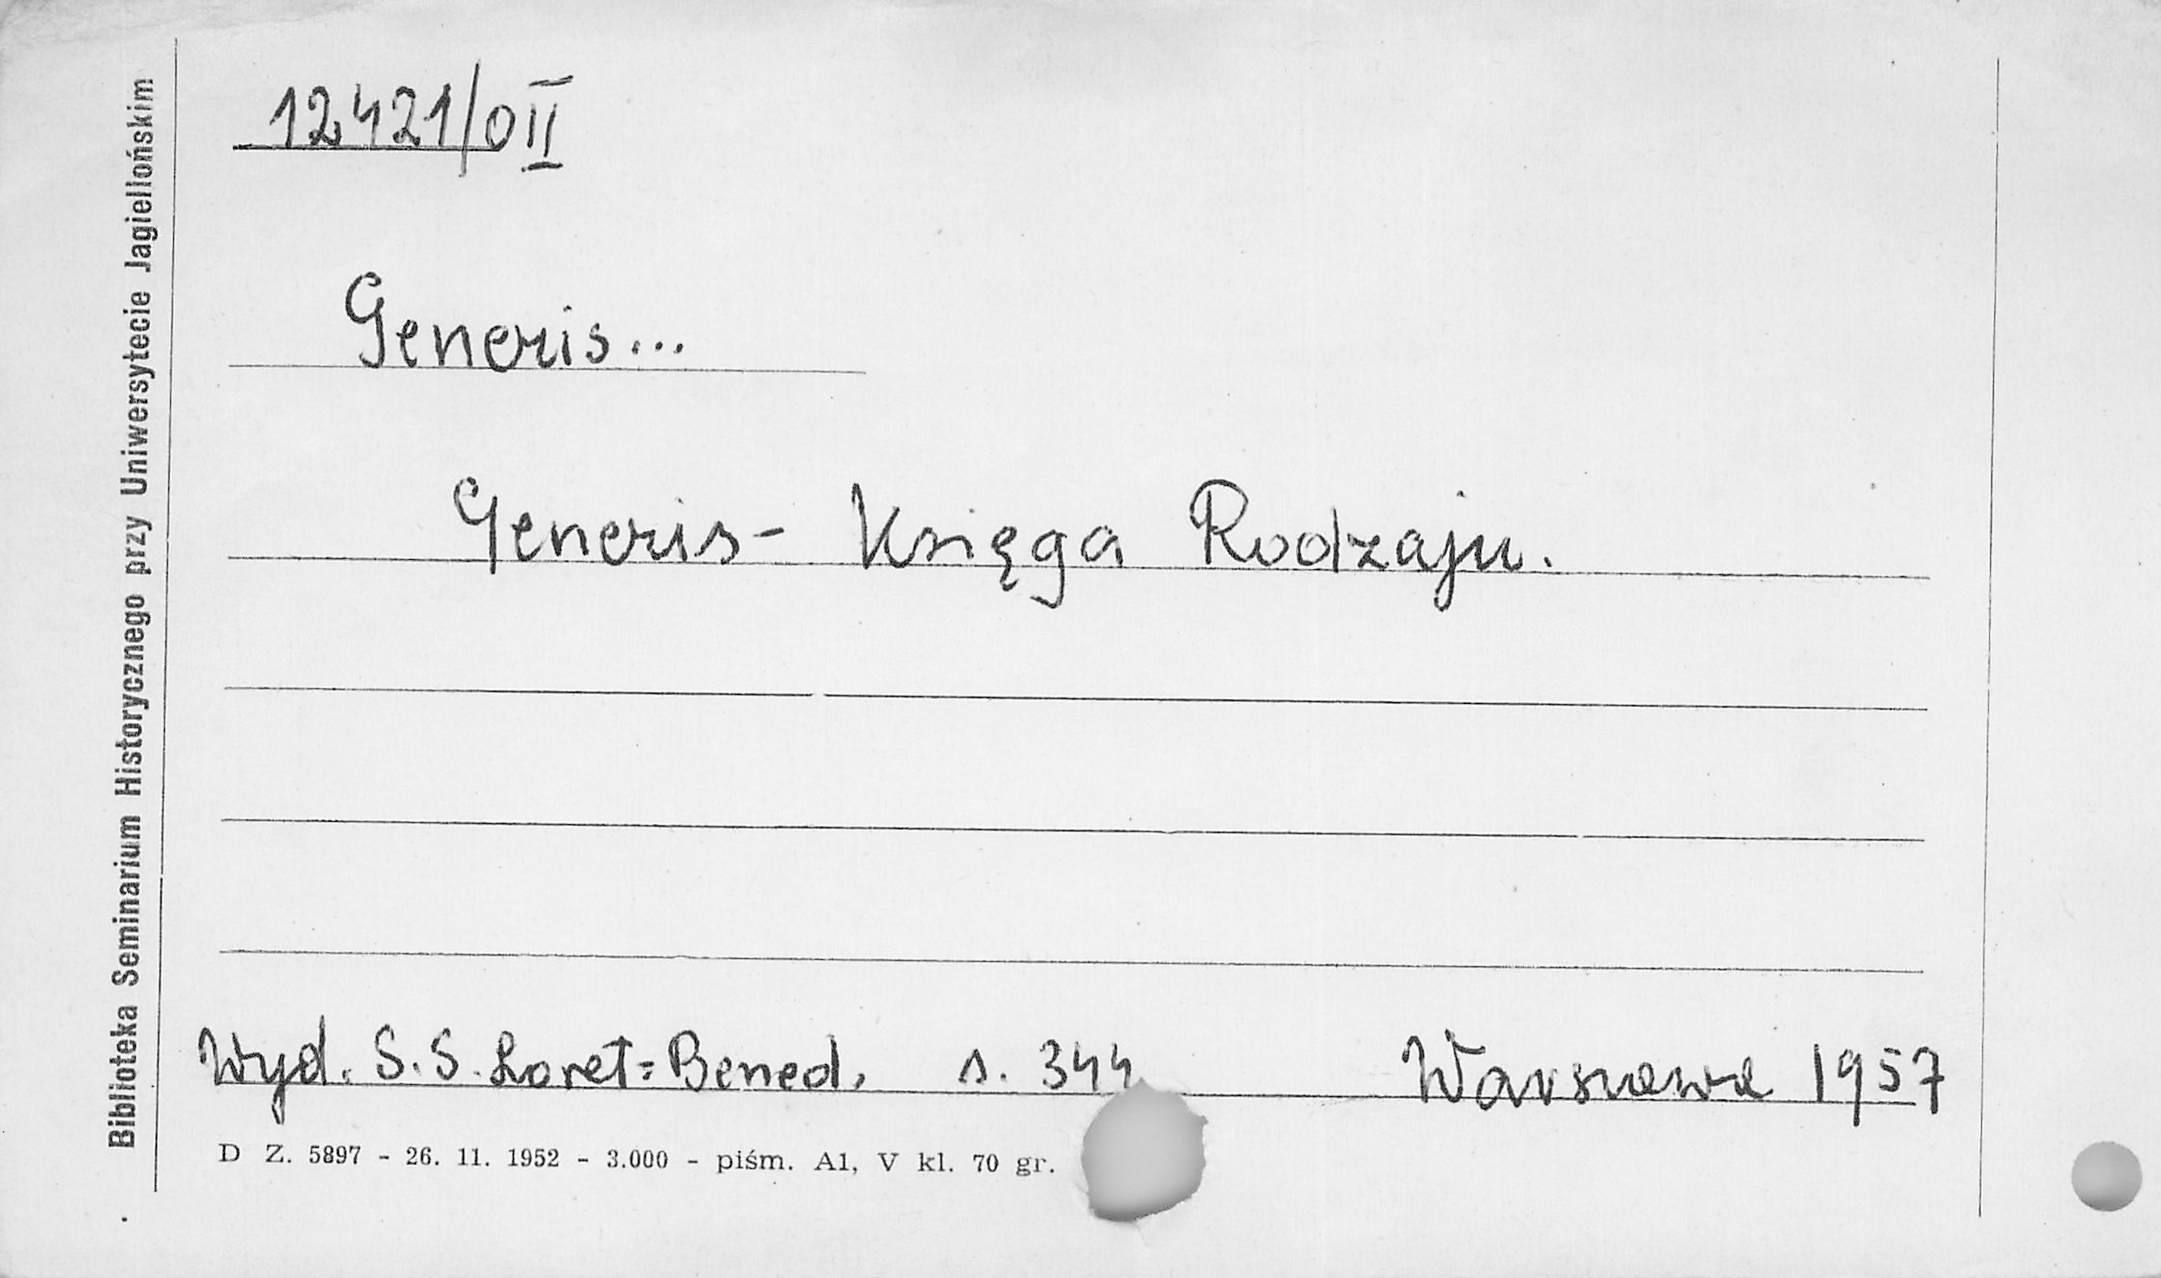 12421/0 II
Generis...
Generis - Księga Rodzaju.
Wyd. S.S. Loret=Bened. s. 344 Warszawa 1957
D Z. 5897 - 26. 11. 1952 - 3.000 - piśm. A1, V kl. 70 gr.
Biblioteka Seminarium Historycznego przy Uniwersytecie Jagiellońskim